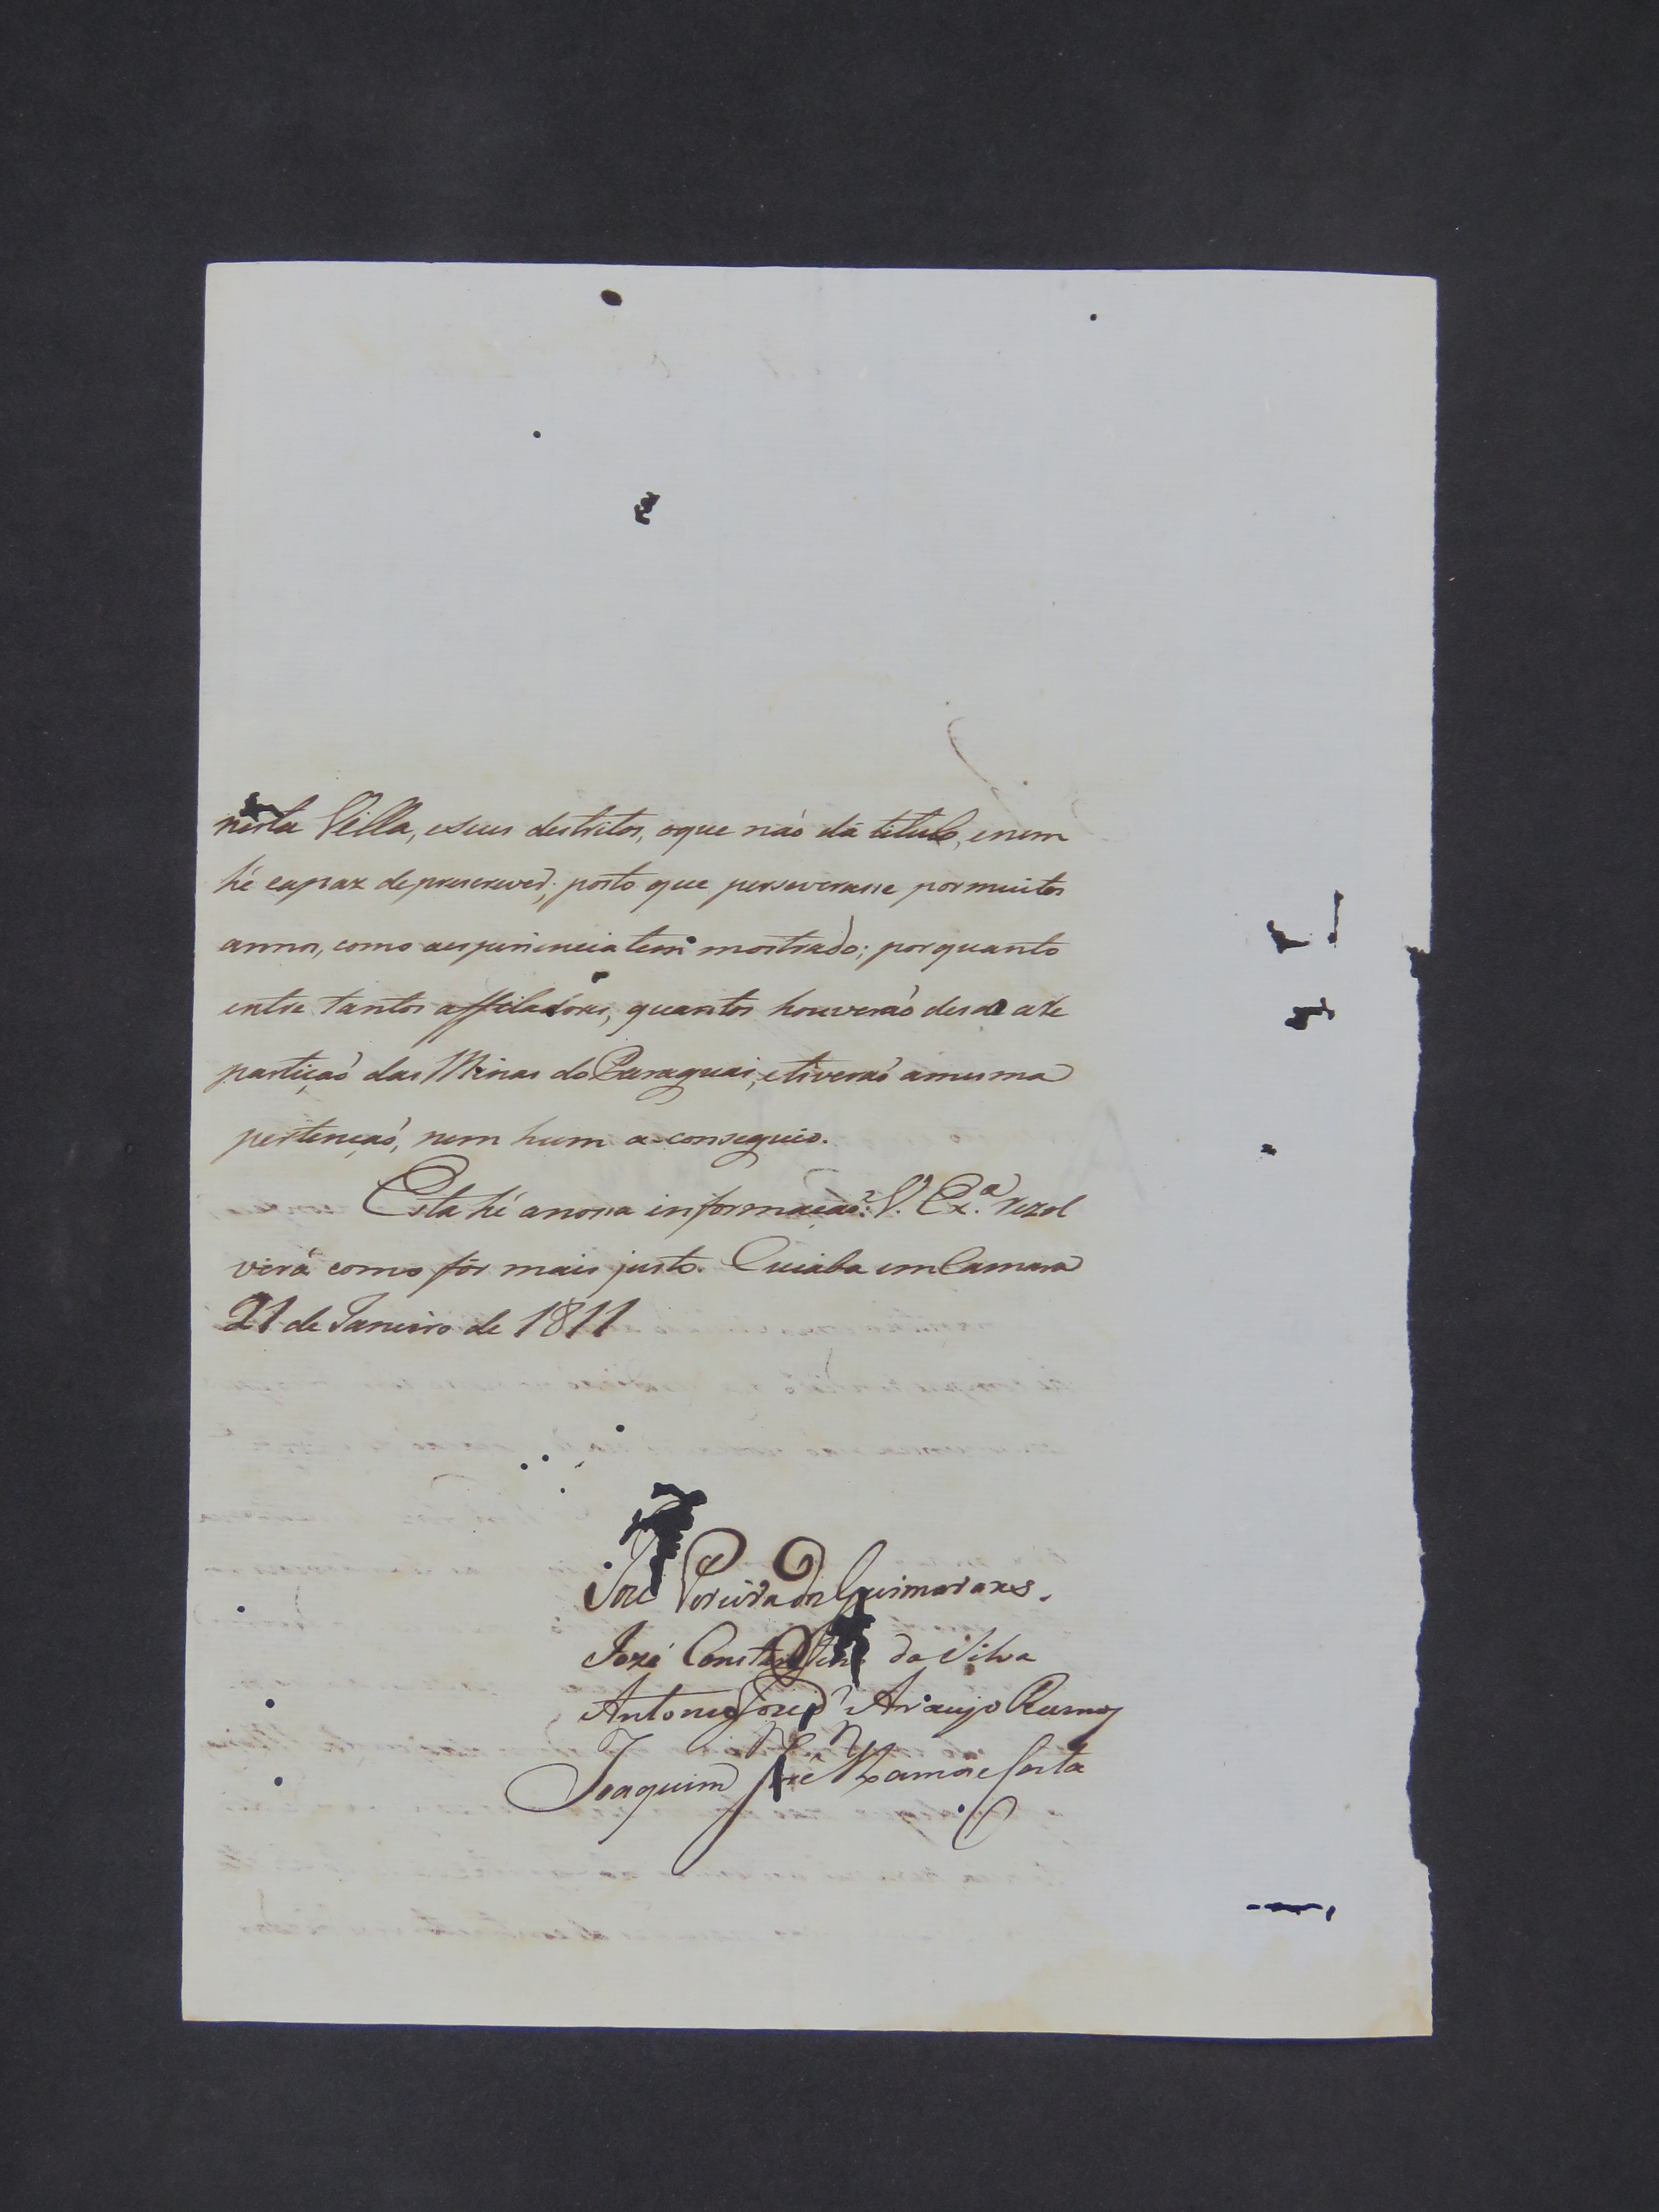 nesta Villa, eseus destritos, oque náo dá titulo, enem
hé capaz deprescrever; posto que perseverasse pormuitos
annos, como aexperiencia tem mostrado; porquanto
entre tantos affiladores, quantos houveráo desde aRe
partiçaó das Minas do Paraguai, etiveraó amesma
pertençaó, nem hum a conseguio.
Esta hé anossa informaçaó: V. Ex.ª rezol
verá como fór mais justo. Cuiaba em Camara
21 de Janeiro de 1811
José Pereira dos Guimaraẽs.
Jozé Constantino da Silva
Antonio Joze d' Araujo Ramos
Joaquim José Ramos e Costa